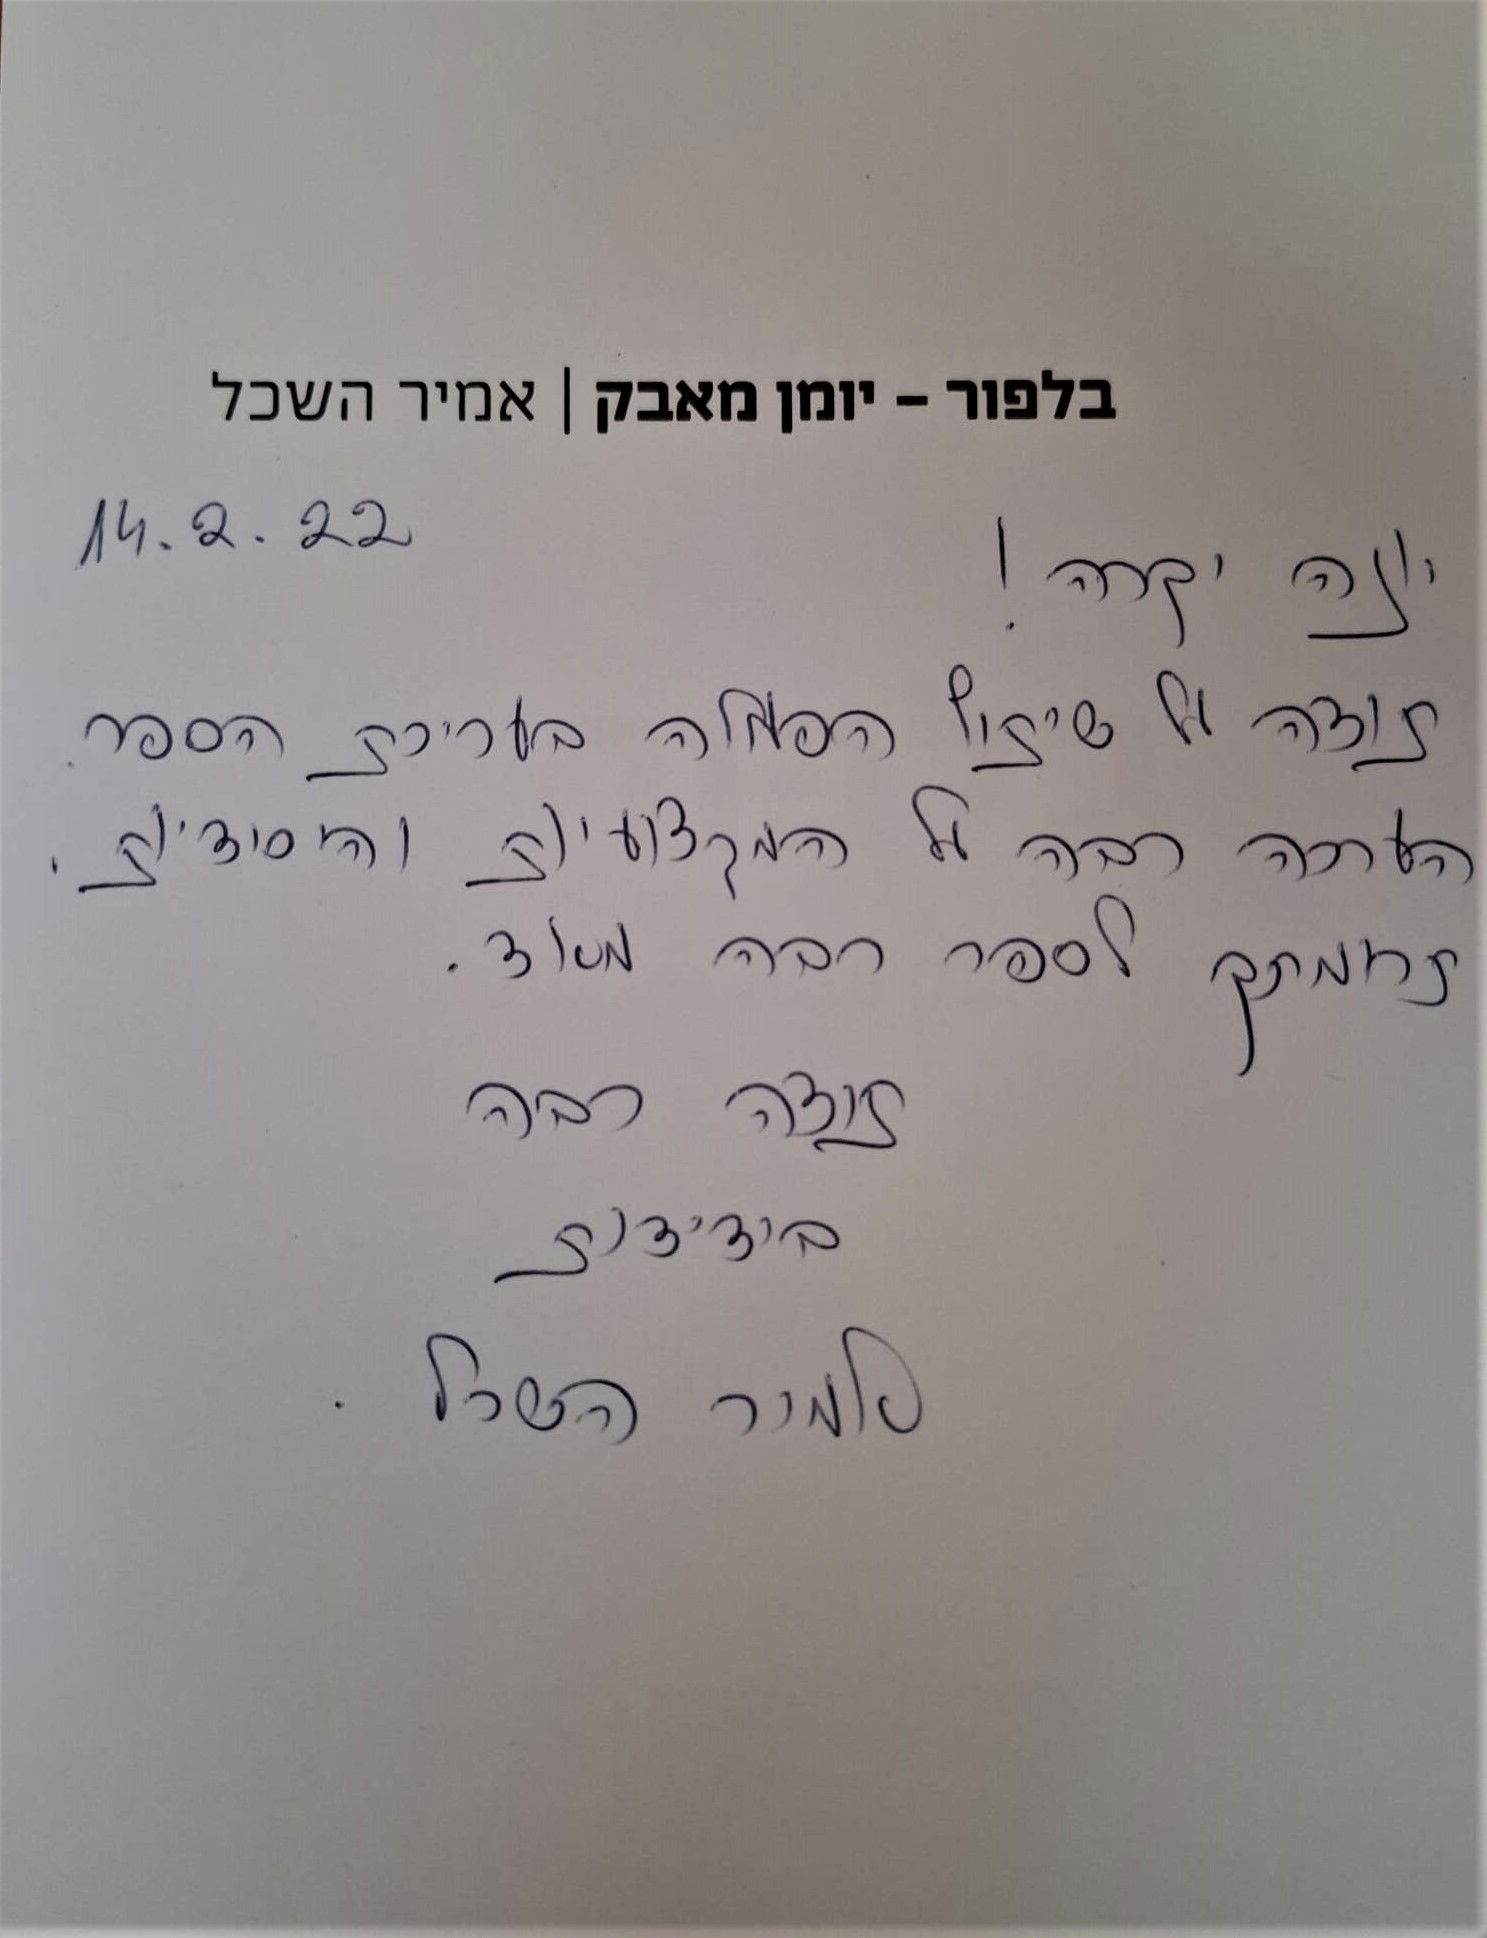 בלפור – יומן מאבק | אמיר השכל
14.2.22
יונה יקרה!
תודה על שיתוף הפעולה בעריכת הספר.
הערכה רבה על המקצועיות והיסודיות.
תרומתך לספר רבה מאוד.
תודה רבה
בידידות
אמיר השכל.